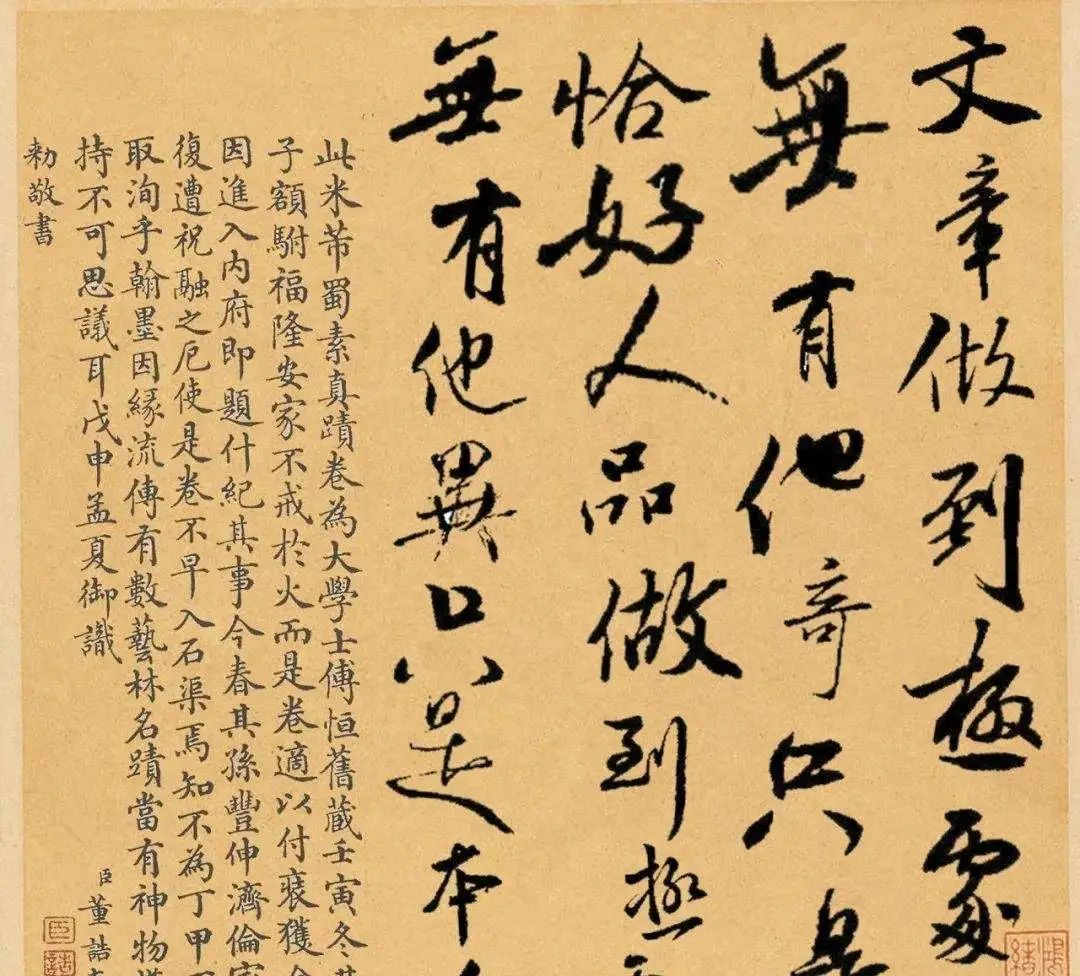 文章做到極處
無有他奇只是
恰好人品做到極
無有他異只是本
此米芾蜀素真蹟卷為大學士傅恒舊藏壬寅冬其
子額駙福隆安家不戒於火而是卷適以付裝獲全
因進入内府即題什紀其事今春其孫豐伸濟倫家
復遭祝融之厄使是卷不早入石渠焉知不為丁甲
取洵乎翰墨因緣流傳有數藝林名蹟當有神物
持不可思議耳戊申孟夏御識
臣董誥奉
勅敬書